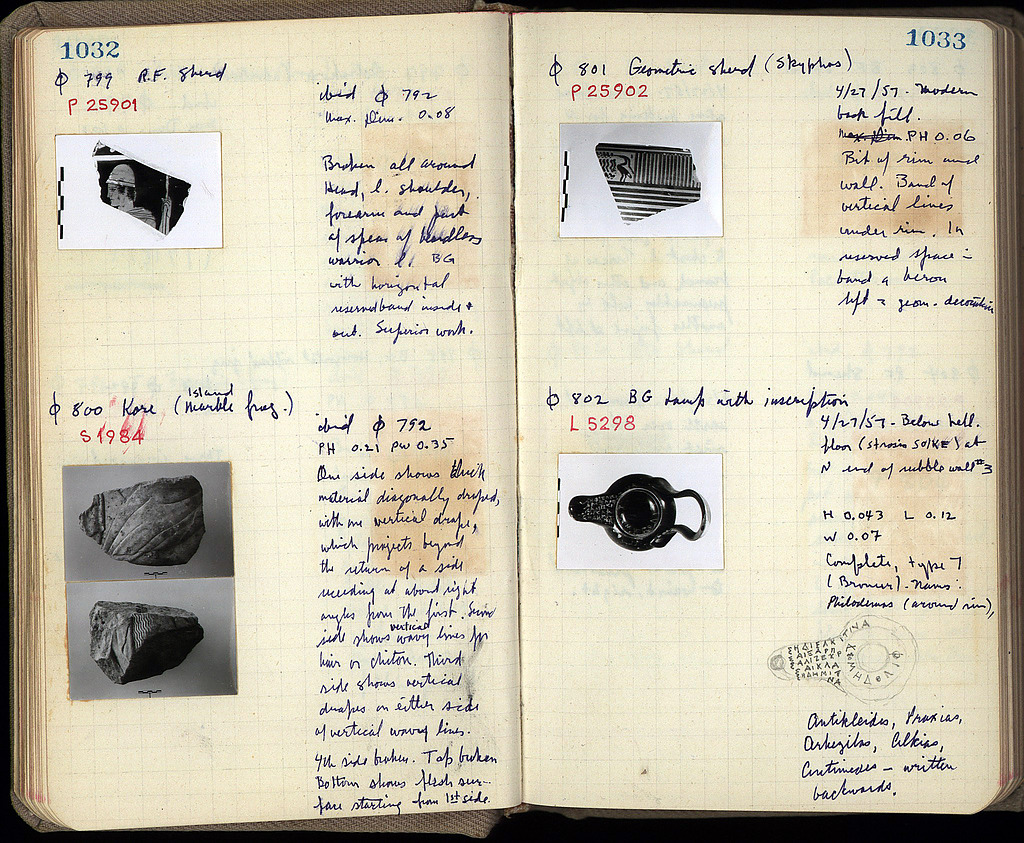 1032
Φ 799 R.F. Sherd
P 25901
ibid Φ 792
Max. Dim. 0.08
Broken all around
Head, l. shoulder,
forearm and part
of spear of beardless
warrior l. BG
with horizontal
reserved band inside +
out. Superior work.
Φ 800 Kore (Island Marble frag.)
S 1984
ibid Φ 792
PH 0.21 PW 0.35
One side shows thick
material diagonally draped,
with one vertical drape,
which projects beyond
the return of a side
receding at about right
angles from the first. Second
side shows vertical wavy lines for
hair or chiton. Third
side shows vertical
drapes on either side
of vertical wavy lines.
4th side broken. Top broken
Bottom shows flesh sur-
face starting from 1st side.
1033
Φ 801 Geometric sherd (Skyphos)
P 25902
4/27/57. Modern
back fill.
Max Dim. PH 0.06
Bit of rim and
wall. Band of
vertical lines
under rim. In
reserved space in
band a heron
left & geom. decoration
Φ 802 BG Lamp with inscription
L 5298
4/27/57. Below hell.
floor (Strosis 50/KE) at
N end of rubble wall #3
H 0.043 L 0.12
W 0.07
Complete, type 7
(Broneer). Names:
Philodemos (around rim),
Antikleides, Praxias,
Arkezilas,
– written
backwards.